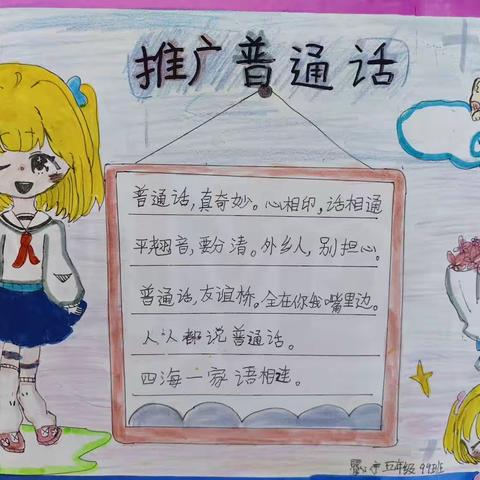 推广普通话
普通话,真奇妙。心相印,话相通
平翘音,要分清。外乡人,别担心。
普通话,友谊桥。全在你我嘴里边。
人人都说普通话。
四海一家语相连。
五年级 99班